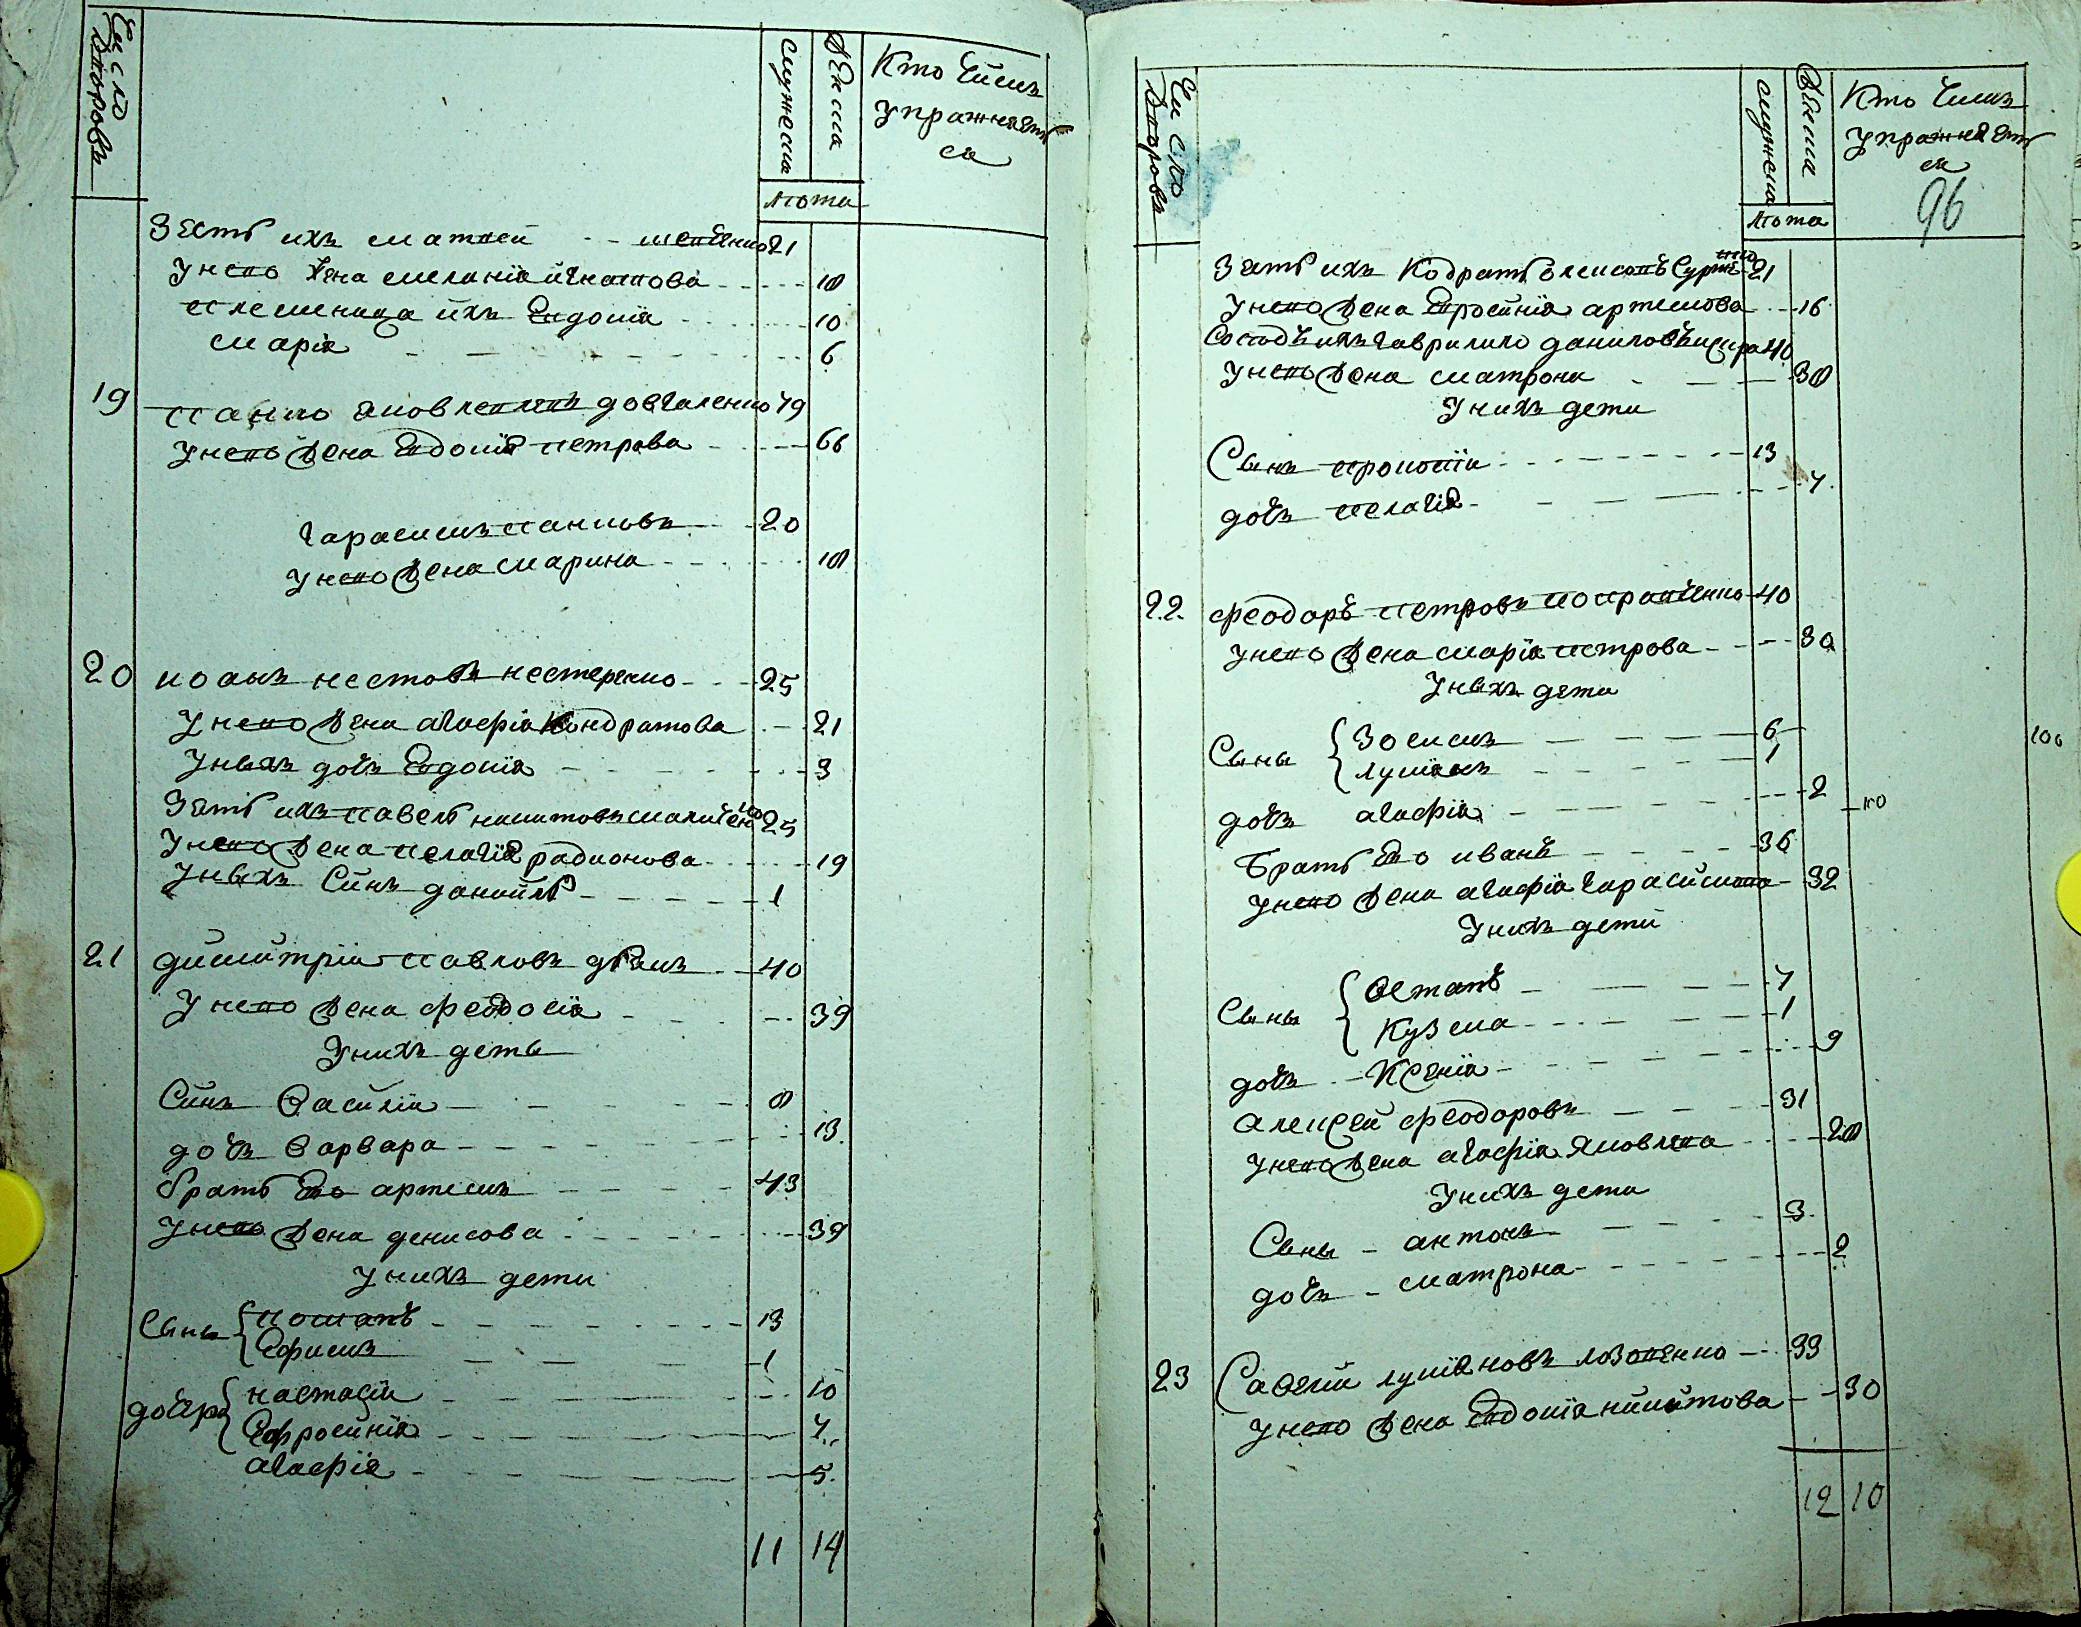 Число
Дворовъ
мужеска
Женска
Кто чимъ
упражняет
ся
лѣта
Зять ихъ матвей 21
у него жена мелания игнатова 18
племеница ихъ Евдокия 10
мария 6
19 панко яковлевичъ довгаленко 79
у него жена Евдокия петрова 66
гарасимъ панковъ 20
у него жена марина 18
20 иоанъ нестеренко 25
у него жена агафия Кондратова 21
у ныхъ дочъ Евдокия 3
Зять ихъ павелъ 25
у него жена пелагия радионова 19
у ныхъ Синъ данийлъ 1
21 димитрий павловъ 40
у него жена феодосия 39
у нихъ деты
Синъ Василий 8
дочъ варвара 13
братъ Его артемъ 43
у него жена денисова 39
у нихъ дети
Сыны потапъ 13
Ефимъ 1
дочери настасия 10
Ефросиния 7
агафия 5
11 14
Число
Дворовъ
мужеска
Женска
Кто чимъ
упражняет
ся
96
лѣта
Зять ихъ Кодратъ 21
у него жена Епросиния артемова 16
гаврило даниловъ 40
у него жена матрона 38
у нихъ дети
Сынъ прокопий 13
дочъ пелагия 7
22 феодоръ петровъ 40
у него жена мария петрова 30
у ныхъ дети
Сыны Зосимъ 6
лукиянъ 1
дочъ агафия 2
братъ Его иванъ 36
у него жена агафия гарасимова 32
у нихъ дети
Сыны Остапъ 7
Кузма 1
дочъ Ксения 9
алексей феодоровъ 31
у него жена агафия яковлева 28
у нихъ дети
Сыны антонъ 3
дочъ матрона 2
23 Савелий лукияновъ 33
у него жена Евдокия никитова 30
12 10